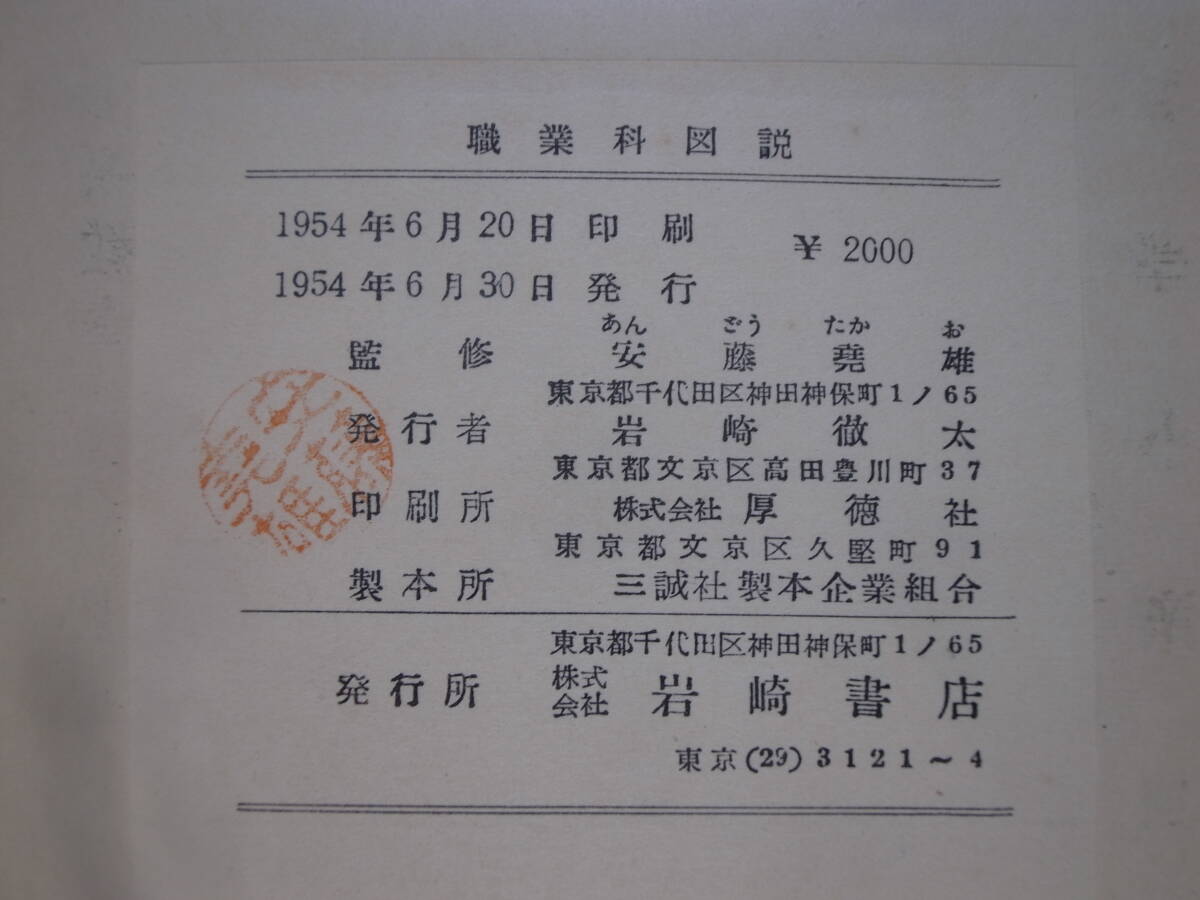 職業科図説
1954年6月20日 印刷
¥ 2000
1954年6月30日 発行
あん どう たか お
監修 安藤堯雄
東京都千代田区神田神保町1ノ65
発行者 岩崎徹太
東京都文京区高田豊川町37
印刷所 株式会社 厚徳社
東京都文京区久堅町91
製本所 三誠社製本企業組合
東京都千代田区神田神保町1ノ65
発行所 株式会社 岩崎書店
東京(29)3121~4